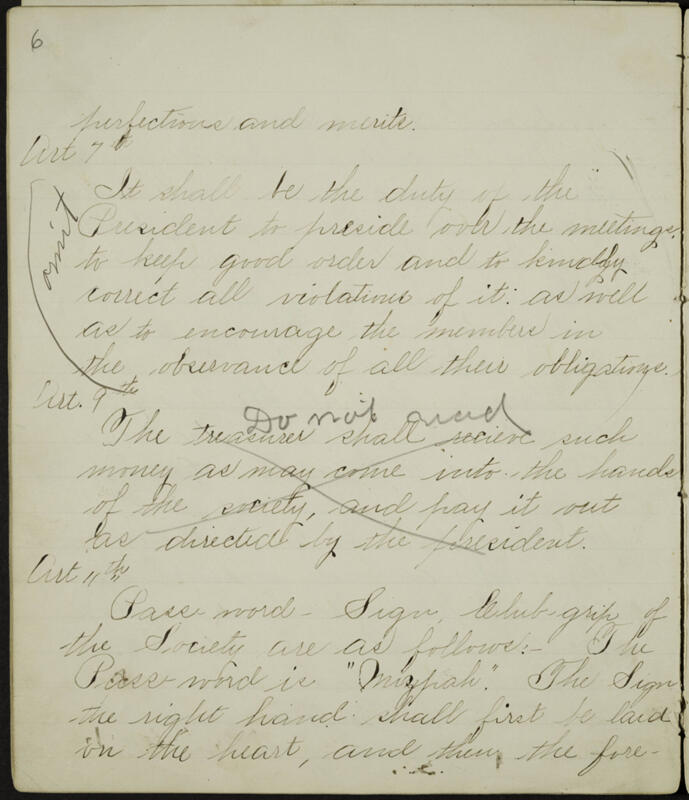 6
perfections and merits.
Art 7th
omit
It shall be the duty of the
President to preside over the meetings,
to keep good order and to kindly
correct all violations of it: as well
as to encourage the members in
the observance of all their obligations.
Art. 9th
Do not read
The treasurer shall recieve such
money as may come into the hands
of the society, and pay it out
as directed by the president.
Art 11th
Pass-word - Sign, Club-grip of
the Society are as follows:- The
Pass-word is "Mizpah". The Sign
the right hand shall first be laid
on the heart, and then the fore-